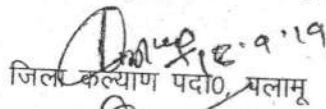 18.9.19
जिला कल्याण पदा०, पलामू